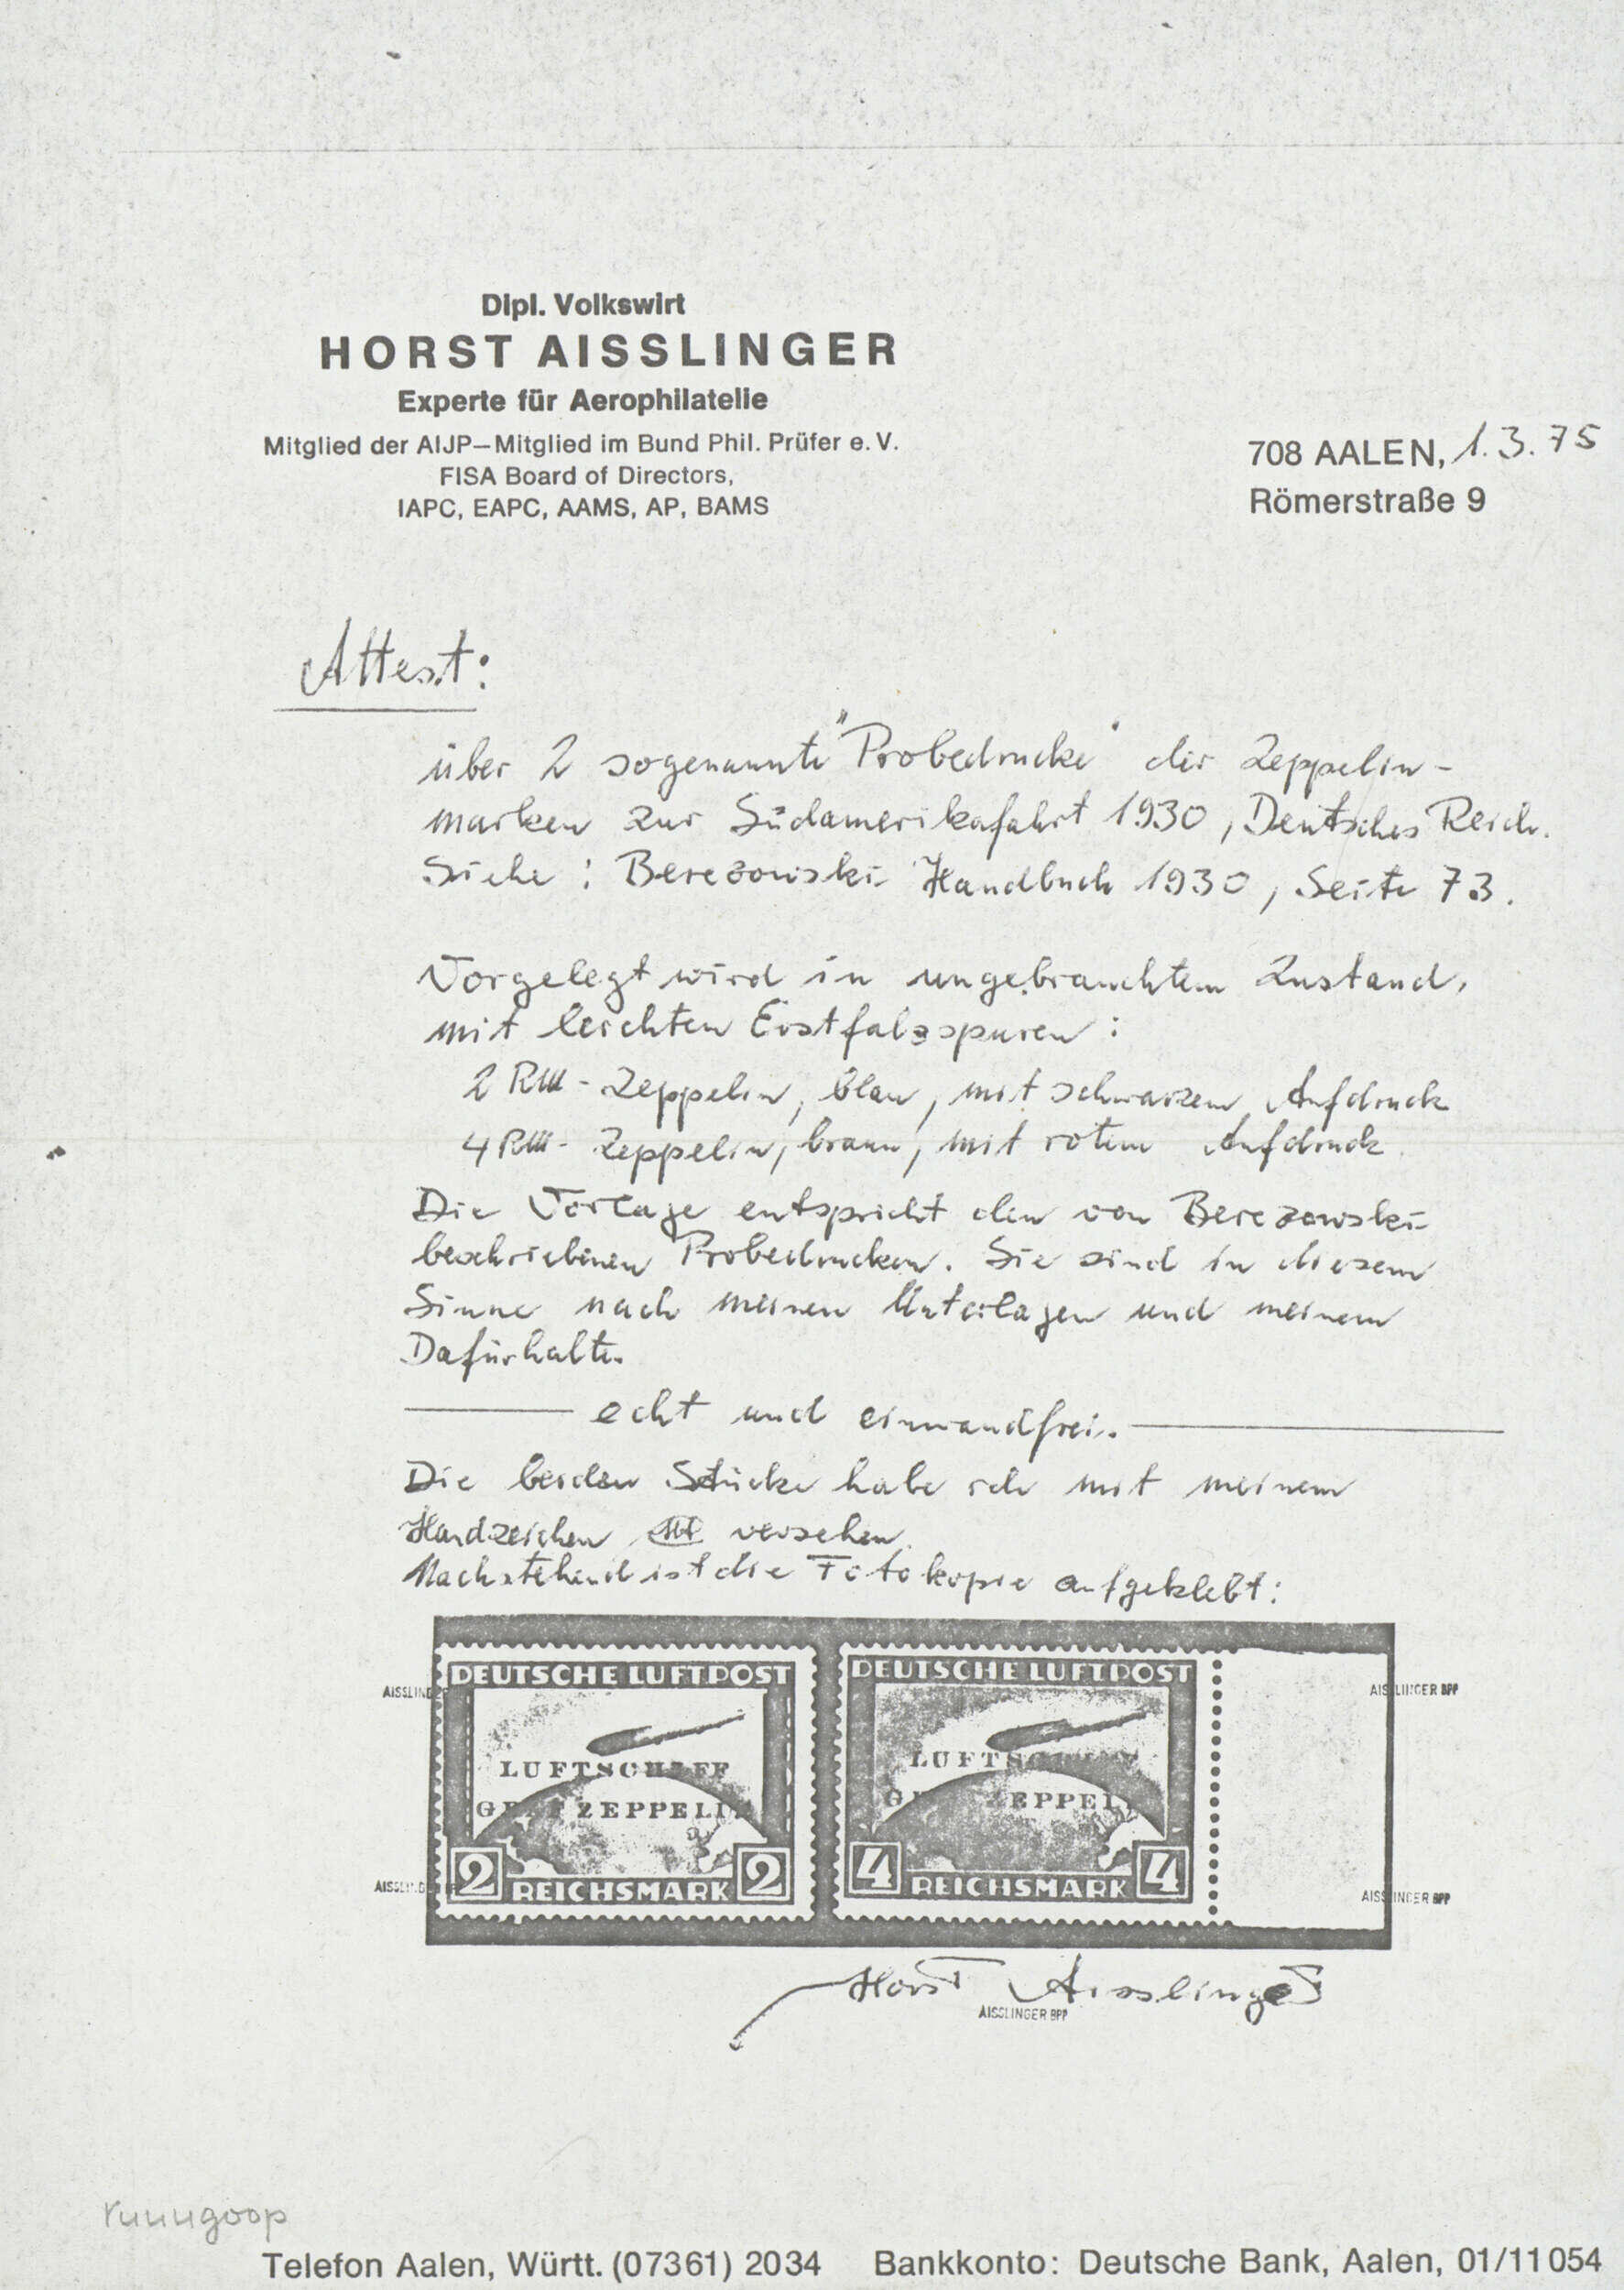 Dipl. Volkswirt
HORST AISSLINGER
Experte für Aerophilatelie
Mitglied der AIJP–Mitglied im Bund Phil. Prüfer e. V.
FISA Board of Directors,
IAPC, EAPC, AAMS, AP, BAMS
708 AALEN, 1.3.75
Römerstraße 9
Attest:
über 2 sogenannte "Probedrucke" der Zeppelin-
marken zur Südamerikafahrt 1930, Deutsches Reich.
Siehe: Berezowski-Handbuch 1930, Seite 73.
Vorgelegt wird in ungebrauchtem Zustand,
mit leichten Erstfalzspuren:
2 RM-Zeppelin, blau, mit schwarzem Aufdruck
4 RM-Zeppelin, braun, mit rotem Aufdruck
Die Vorlage entspricht den von Berezowski
beschriebenen Probedrucken. Sie sind in diesem
Sinne nach meinen Unterlagen und meinem
Dafürhalten
echt und einwandfrei.
Die beiden Stücke habe ich mit meinem
Handzeichen versehen.
Nachstehend ist die Fotokopie aufgeklebt:
DEUTSCHE LUFTPOST DEUTSCHE LUFTPOST
AISSLINGER AISSLINGER BPP
LUFTSCHIFF LUFTSCHIFF
GRAF ZEPPELIN GRAF ZEPPELIN
2 2 4 4
REICHSMARK REICHSMARK
AISSLINGER AISSLINGER BPP
Horst Aisslinger
AISSLINGER BPP
Telefon Aalen, Württ. (07361) 2034 Bankkonto: Deutsche Bank, Aalen, 01/11054